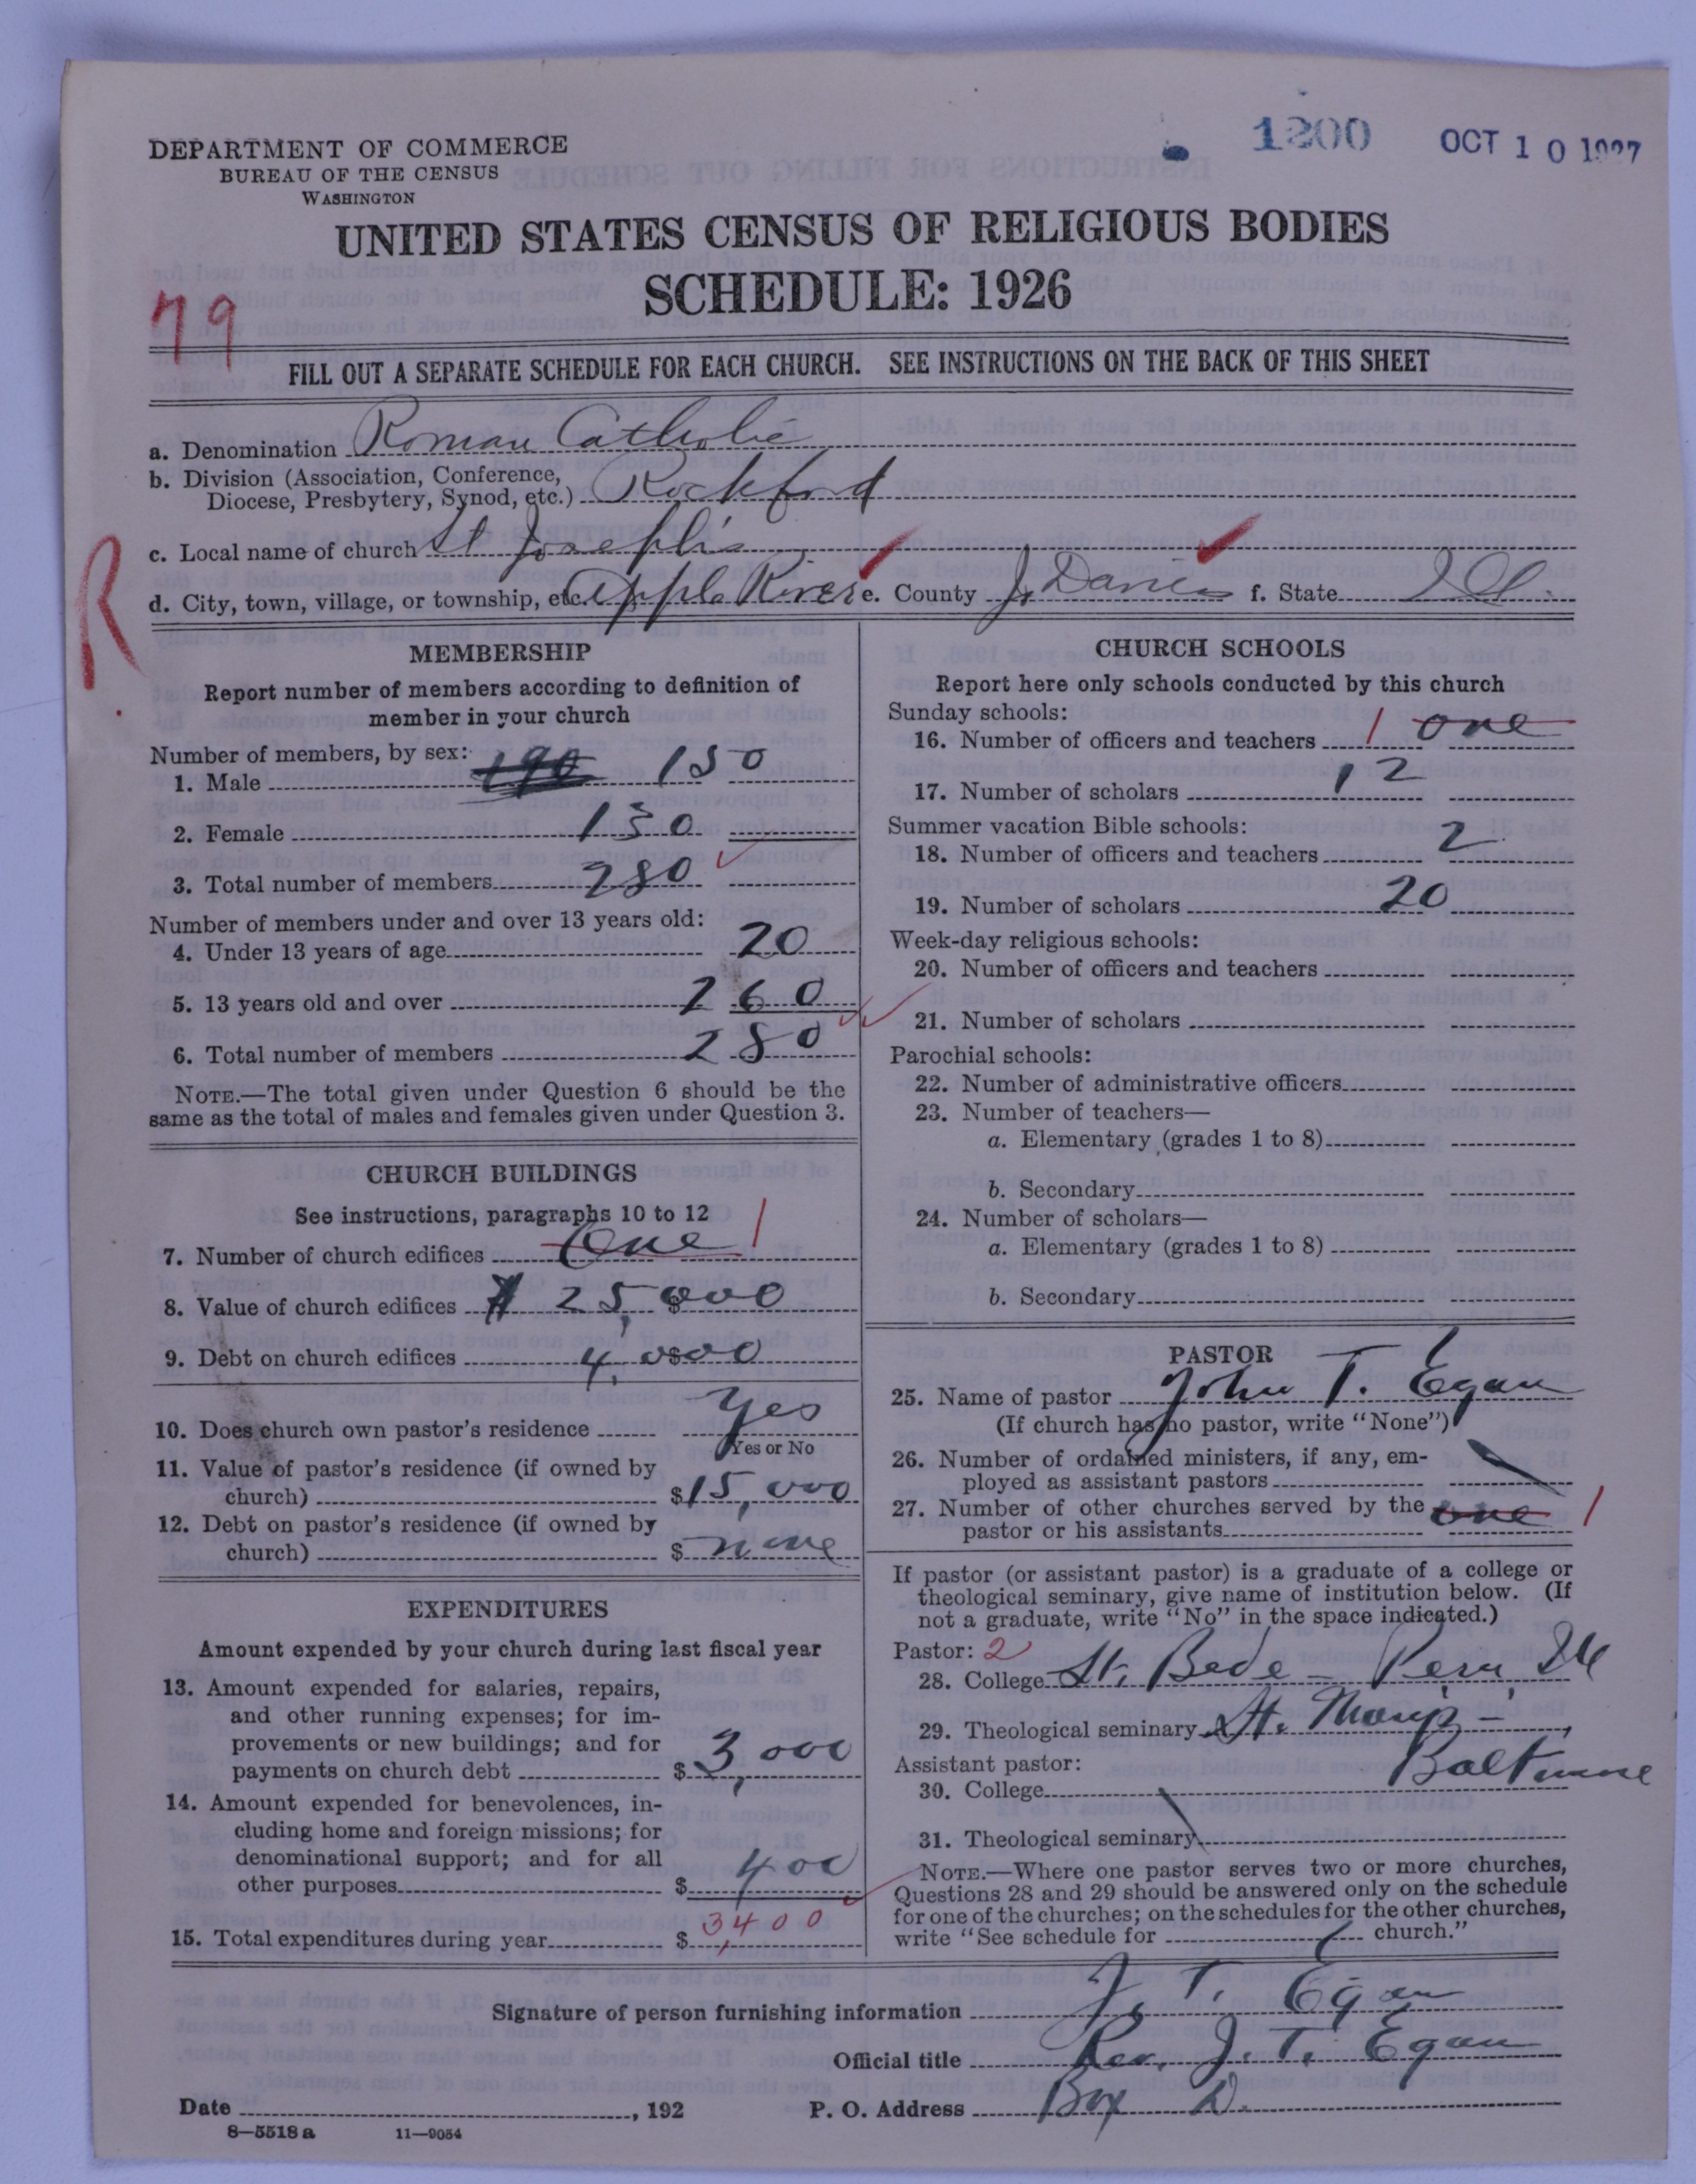 1200 OCT 10 1927
DEPARTMENT OF COMMERCE
BUREAU OF THE CENSUS
WASHINGTON
UNITED STATES CENSUS OF RELIGIOUS BODIES
SCHEDULE: 1926
79
FILL OUT A SEPARATE SCHEDULE FOR EACH CHURCH. SEE INSTRUCTIONS ON THE BACK OF THIS SHEET
a. Denomination Roman Catholic
b. Division (Association, Conference,
Diocese, Presbytery, Synod, etc.) Rockford
c. Local name of church St Joseph's
d. City, town, village, or township, etc. Apple River e. County Jo Davies f. State Ill.
R
MEMBERSHIP
Report number of members according to definition of
member in your church
Number of members, by sex:
1. Male 190 150
2. Female 130
3. Total number of members 280
Number of members under and over 13 years old:
4. Under 13 years of age 20
5. 13 years old and over 260
6. Total number of members 280
NOTE.—The total given under Question 6 should be the
same as the total of males and females given under Question 3.
CHURCH BUILDINGS
See instructions, paragraphs 10 to 12
7. Number of church edifices One 1
8. Value of church edifices $ 25,000
9. Debt on church edifices $ 4,000
10. Does church own pastor's residence Yes
Yes or No
11. Value of pastor's residence (if owned by
church) $ 15,000
12. Debt on pastor's residence (if owned by
church) $ none
EXPENDITURES
Amount expended by your church during last fiscal year
13. Amount expended for salaries, repairs,
and other running expenses; for im-
provements or new buildings; and for
payments on church debt $ 3,000
14. Amount expended for benevolences, in-
cluding home and foreign missions; for
denominational support; and for all
other purposes $ 400
15. Total expenditures during year $ 3,400
CHURCH SCHOOLS
Report here only schools conducted by this church
Sunday schools:
16. Number of officers and teachers 1 one
17. Number of scholars 12
Summer vacation Bible schools:
18. Number of officers and teachers 2
19. Number of scholars 20
Week-day religious schools:
20. Number of officers and teachers
21. Number of scholars
Parochial schools:
22. Number of administrative officers
23. Number of teachers—
a. Elementary (grades 1 to 8)
b. Secondary
24. Number of scholars—
a. Elementary (grades 1 to 8)
b. Secondary
PASTOR
25. Name of pastor John T. Egan
(If church has no pastor, write "None")
26. Number of ordained ministers, if any, em-
ployed as assistant pastors
27. Number of other churches served by the one 1
pastor or his assistants
If pastor (or assistant pastor) is a graduate of a college or
theological seminary, give name of institution below. (If
not a graduate, write "No" in the space indicated.)
Pastor: 2
28. College St. Bede – Peru Ill
29. Theological seminary St. Mary's –
Baltimore
Assistant pastor:
30. College
31. Theological seminary
NOTE.—Where one pastor serves two or more churches,
Questions 28 and 29 should be answered only on the schedule
for one of the churches; on the schedules for the other churches,
write "See schedule for church."
Signature of person furnishing information J. T. Egan
Official title Rev. J. T. Egan
Date , 192 P. O. Address Box D.
8—5518 a 11—9054